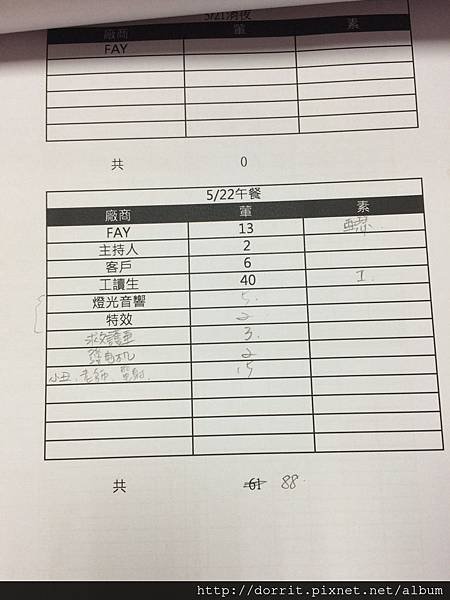 5/21消夜
廠商 葷 素
FAY
共 0
5/22午餐
廠商 葷 素
FAY 13
主持人 2
客戶 6
工讀生 40 1
燈光音響 5
特效 2
救護車 3
發电机 2
小丑、老師、 15
共 61 88
http://dorrit.pixnet.net/album